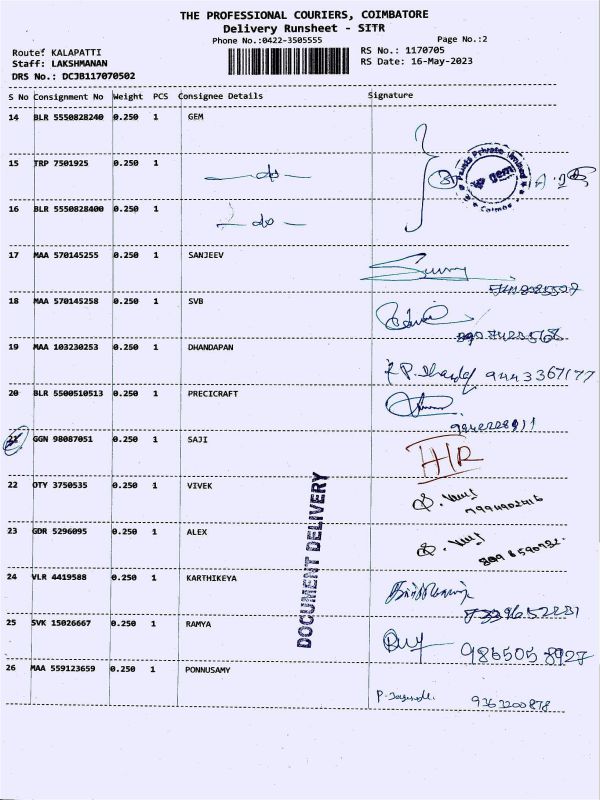 THE PROFESSIONAL COURIERS, COIMBATORE
Delivery Runsheet - SITR
Phone No.:0422-3505555 Page No.:2
Route: KALAPATTI RS No.: 1170705
Staff: LAKSHMANAN RS Date: 16-May-2023
DRS No.: DCJB117070502
S No Consignment No Weight PCS Consignee Details Signature
14 BLR 5550828240 0.250 1 GEM
15 TRP 7501925 0.250 1 — do —
16 BLR 5550828400 0.250 1 — do —
Private Limited
gem
17 MAA 570145255 0.250 1 SANJEEV
18 MAA 570145258 0.250 1 SVB
19 MAA 103230253 0.250 1 DHANDAPAN
9443367177
20 BLR 5500510513 0.250 1 PRECICRAFT
21 GGN 98087051 0.250 1 SAJI
22 OTY 3750535 0.250 1 VIVEK
23 GDR 5296095 0.250 1 ALEX
24 VLR 4419588 0.250 1 KARTHIKEYA
25 SVK 15026667 0.250 1 RAMYA
9865058927
26 MAA 559123659 0.250 1 PONNUSAMY
9363200878
DOCUMENT DELIVERY